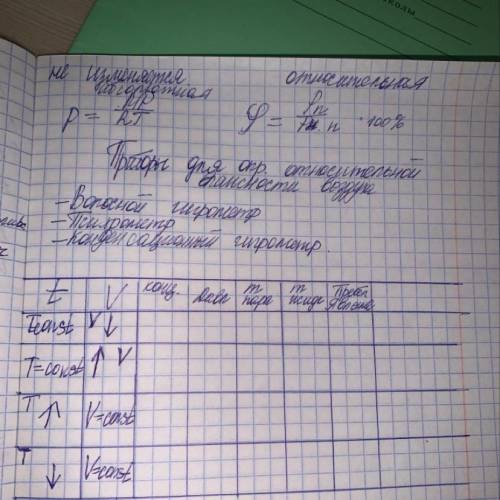 не изменяется относительная
абсолютная
ρ = / RT φ = ρп / · 100%
Приборы для опр. относительной
влажности воздуха
- Волосной гигрометр
- Психрометр
- Конденсационный гигрометр.
t V конц. Давл m пара m жидк
Tconst V ↓
T=const ↑ V
T ↑ V=const
T ↓ V=const